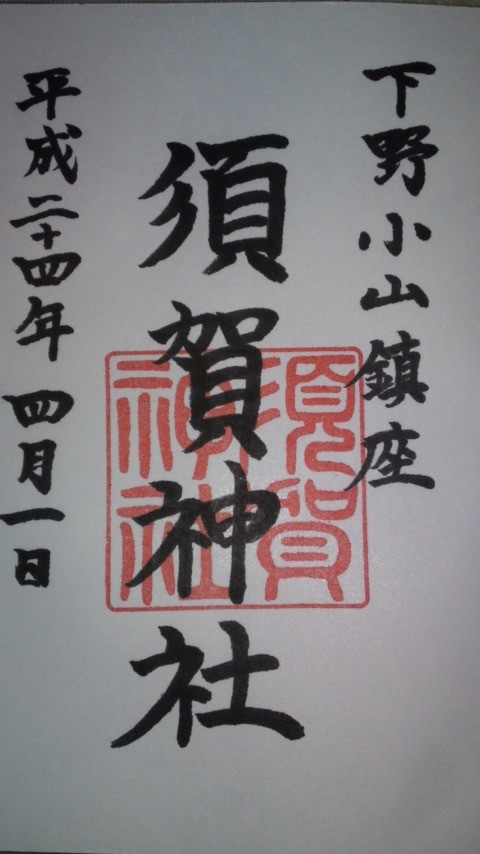 下野小山鎮座
須賀神社
須賀神社
平成二十四年 四月一日